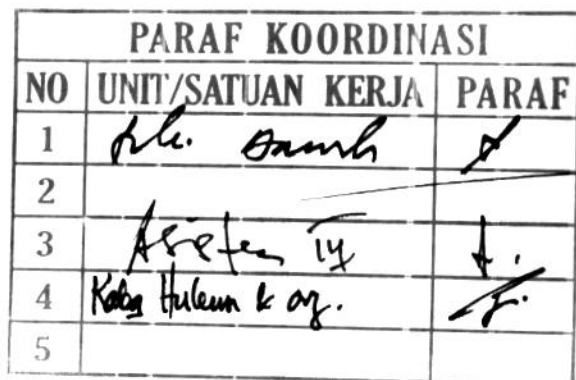 PARAF KOORDINASI
NO UNIT/SATUAN KERJA PARAF
1
2
3 Asisten
4 Kabag Hukum & org.
5